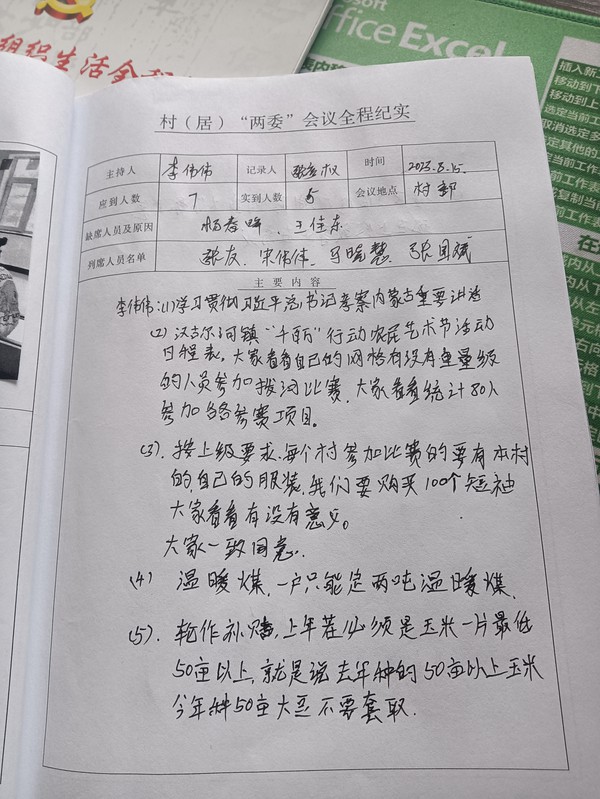 组织生活全程
Microsoft
Office Excel
插入新工
移动到下
移动到上
选定当前工
取消选定多
选定其他的工
当前工作表
复制当前工
当前工作表
在
村（居）“两委”会议全程纪实
主持人 李伟伟 记录人 时间 2023.8.15.
应到人数 7 实到人数 5 会议地点 村部
缺席人员及原因 杨春晖、王佳东
列席人员名单 张友、宋伟伟、马晓慧、张国斌
主要内容
李伟伟:(1)学习贯彻习近平总书记考察内蒙古重要讲话
(2)汉吉尔河镇“千百万”行动农民艺术节活动
日程表,大家看看自己的网格有没有重量级
的人员参加拔河比赛,大家看看统计80人
参加各参赛项目。
(3).按上级要求,每个村参加比赛的要有本村
的,自己的服装,我们要购买100个短袖
大家看看有没有意义。
大家一致同意.
(4) 温暖煤,一户只能定两吨温暖煤.
(5).轮作补贴,上年茬必须是玉米一片最低
50亩以上,就是说去年种的50亩以上玉米
今年种50亩大豆不要套取.